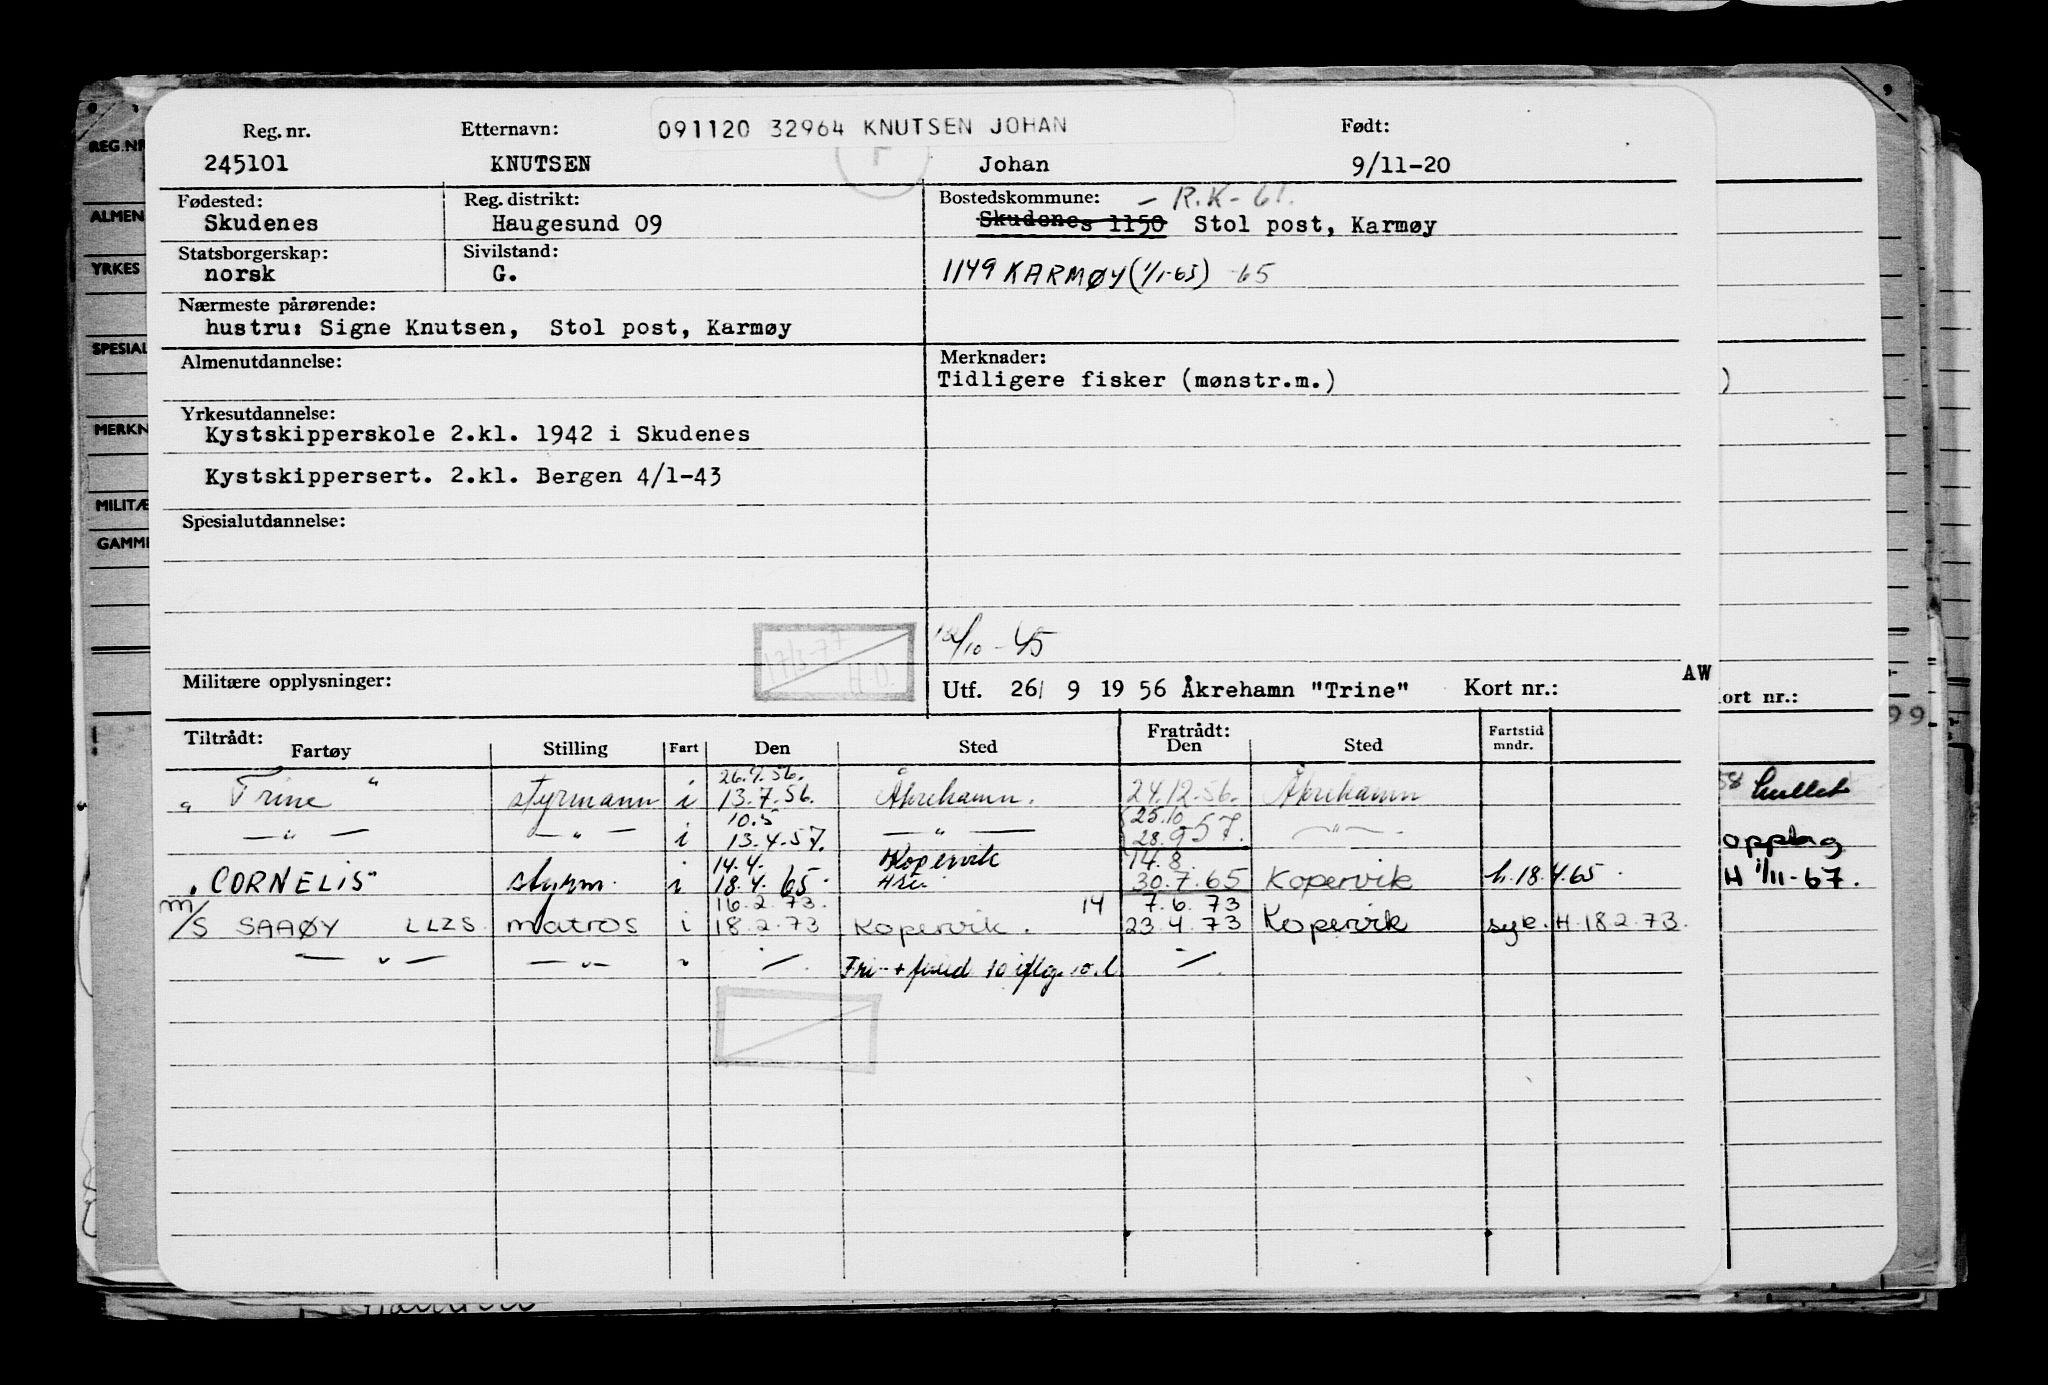 091120 32964 KNUTSEN JOHAN
Reg. nr. Etternavn: Født:
245101 KNUTSEN Johan 9/11-20
Fødested: Reg. distrikt: Bostedskommune: - R.K-61.
Skudenes Haugesund 09 Skudenes 1150 Stol post, Karmøy
Statsborgerskap: Sivilstand:
norsk G. 1149 KARMØY (1/1-65) -65
Nærmeste pårørende:
hustru: Signe Knutsen, Stol post, Karmøy
Almenutdannelse: Merknader:
Tidligere fisker (mønstr.m.)
Yrkesutdannelse:
Kystskipperskole 2.kl. 1942 i Skudenes
Kystskippersert. 2.kl. Bergen 4/1-43
Spesialutdannelse:
17/3-77 H.O.
/10-45
Militære opplysninger: Utf. 26/ 9 19 56 Åkrehamn "Trine" Kort nr.: AW
Tiltrådt: Fratrådt: Fartstid
Fartøy Stilling Fart Den Sted Den Sted mndr.
26.9.56.
" Trine " styrmann i 13.7.56. Åkrehamn. 24.12.56. Åkrehamn
10.5 25.10
—"— —"— i 13.4.57. —"— 28.9 57. —"—
14.4. Kopervik 14.8.
"CORNELIS" styrm. i 18.4.65 30.7.65 Kopervik h.18.4.65
16.2.73. 14 7.6.73
m/S SAAØY LLZS matros i 18.2.73 Kopervik. 23 4.73 Kopervik syk. H-18 2.73.
—"— —"— " — Fri + —
REG.NR
ALMEN
YRKES
SPESIAL
MERKN
MILITÆ
GAMM
)
ort nr.:
99
58 hullet
opplag
H 1/11-67.